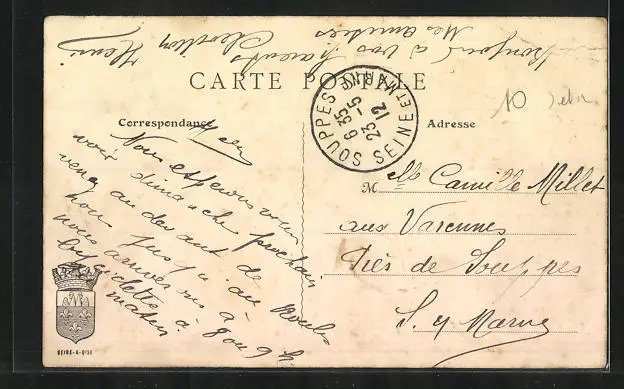 Bonjour à vos parents
Mes amitiés
Clevillon Henri
CARTE POSTALE
Correspondance
Adresse
SOUPPES SEINE ET MARNE
6 35
23 - 5
12
10
Nous espérons vous
voir dimanche prochain
venez au devant de
nous jusqu'au
nous arriverons à
bicyclette à 8 ou 9 h
matin
M elle Camille Millet
aux Varennes
Près de Souppes
S. et Marne
SEINE-&-OISE